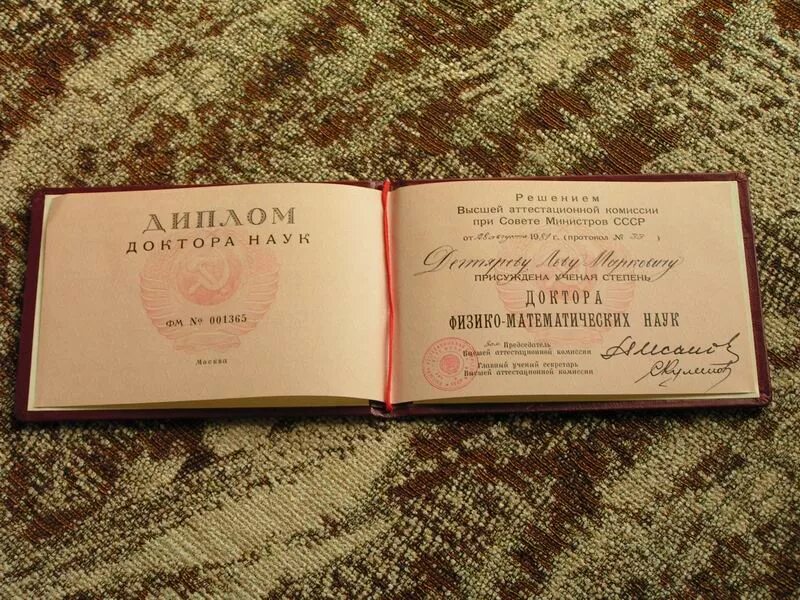 ДИПЛОМ
ДОКТОРА НАУК
ФМ № 001365
Москва
Решением
Высшей аттестационной комиссии
при Совете Министров СССР
от 28 августа 1981 г. (протокол № )
Дегтяреву Льву Марковичу
ПРИСУЖДЕНА УЧЕНАЯ СТЕПЕНЬ
ДОКТОРА
ФИЗИКО-МАТЕМАТИЧЕСКИХ НАУК
Зам. Председатель
Высшей аттестационной комиссии
Главный ученый секретарь
Высшей аттестационной комиссии